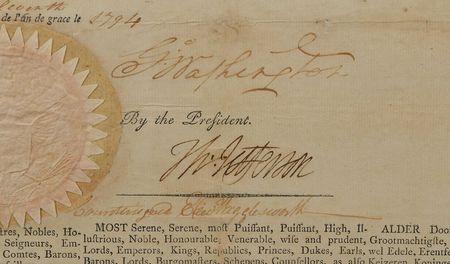 de l'an de grace le 1794
Go Washington
By the President.
Th: Jefferson
Countersigned
MOST Serene, Serene, moſt Puiſſant, Puiſſant, High, Il-
luſtrious, Noble, Honourable, Venerable, wiſe and prudent,
Lords, Emperors, Kings, Republics, Princes, Dukes, Earls,
Barons, Lords, Burgomaſters, Schepens, Counſellors, as alſo
res, Nobles, Ho-
Seigneurs, Em-
Comtes, Barons,
ALDER Doo
Grootmachtigſte,
wel Edele, Erentfe
Keizeren, Koningen